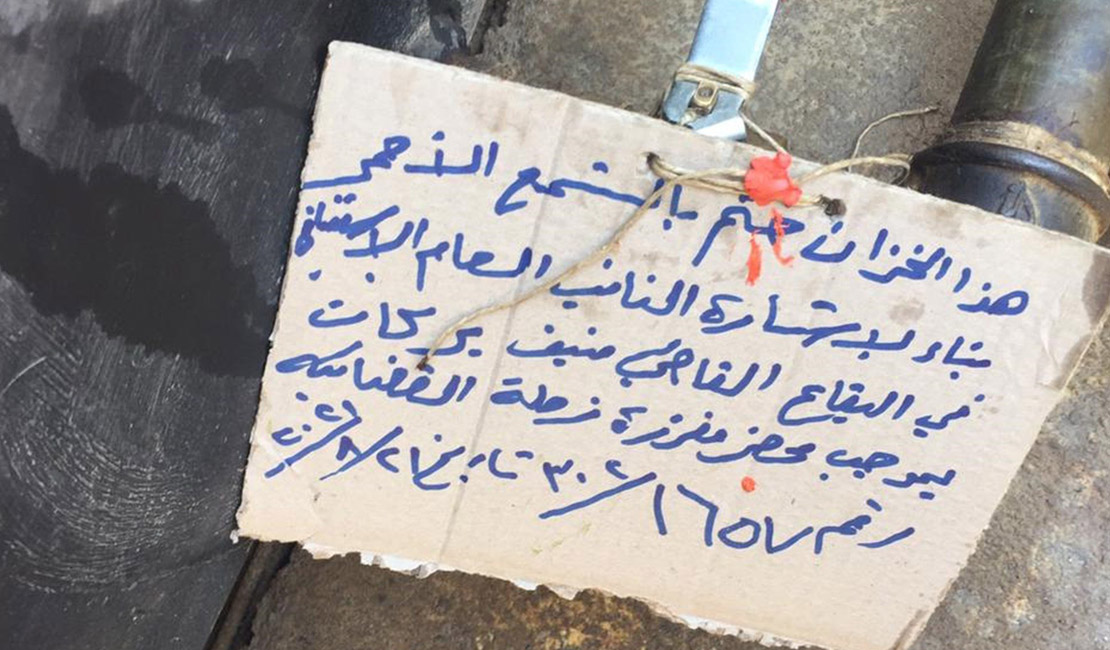 هذا الخزان ختم بالشمع الأحمر
بناء لاشارة النائب العام الاستئنافي
في البقاع القاضي منيف بركات
بموجب محضر مفرزة زحلة القضائية
رقم ١٦٥٧/٣٠٢ تاريخ ٢١/٨/